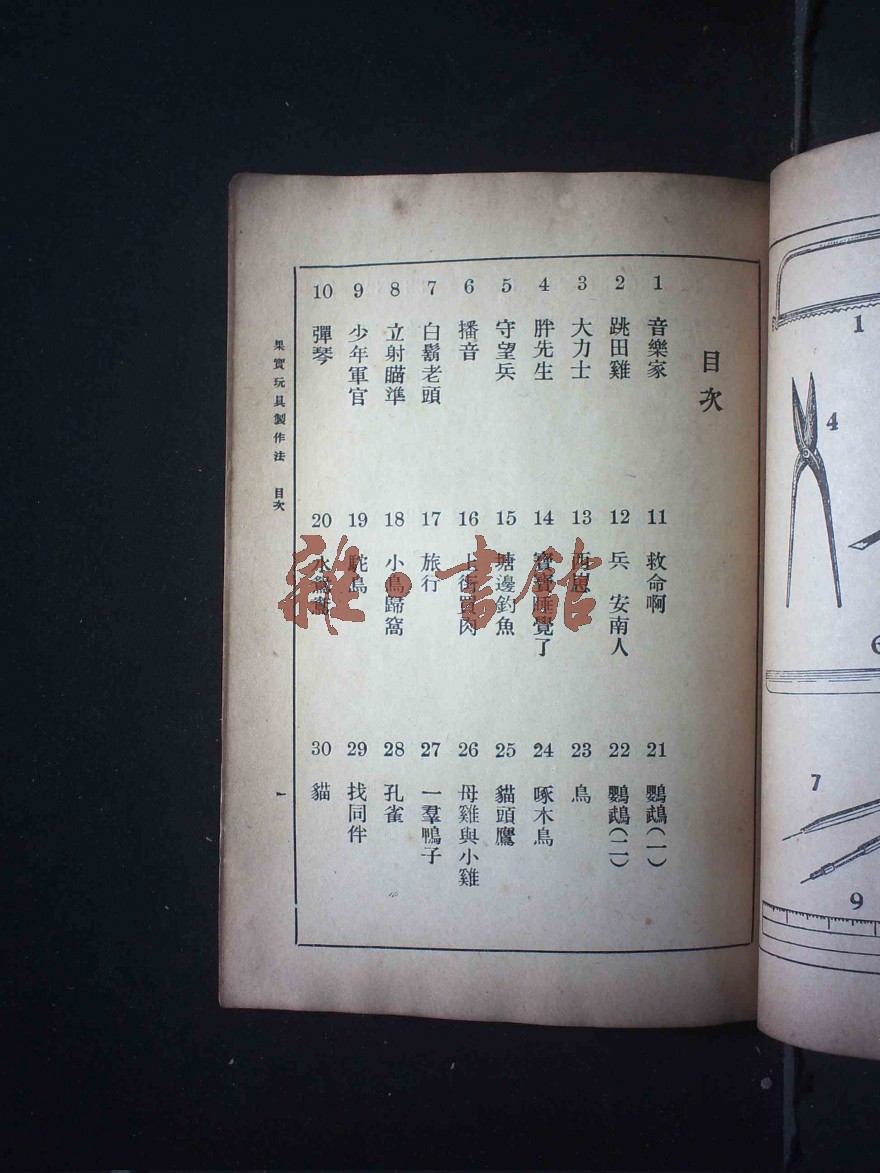 目次
1 音樂家
2 跳田雞
3 大力士
4 胖先生
5 守望兵
6 播音
7 白鬍老頭
8 立射瞄準
9 少年軍官
10 彈琴
11 救命啊
12 兵 安南人
13 西崽
14 寶寶睡覺了
15 塘邊釣魚
16 上街買肉
17 旅行
18 小鳥歸窩
19 駝鳥
20 水
21 鸚鵡(一)
22 鸚鵡(二)
23 鳥
24 啄木鳥
25 貓頭鷹
26 母雞與小雞
27 一羣鴨子
28 孔雀
29 找同伴
30 貓
果實玩具製作法 目次
一
雜·書館
1
4
7
9